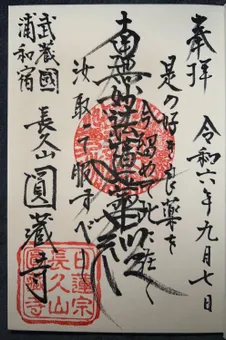 奉拝
令和六年九月七日
是の好き良薬を
今留めて此に在く
南無妙法蓮華経
汝取って服すべし
長久山
圓蔵寺
武蔵國
浦和宿
日蓮宗
長久山
圓蔵寺